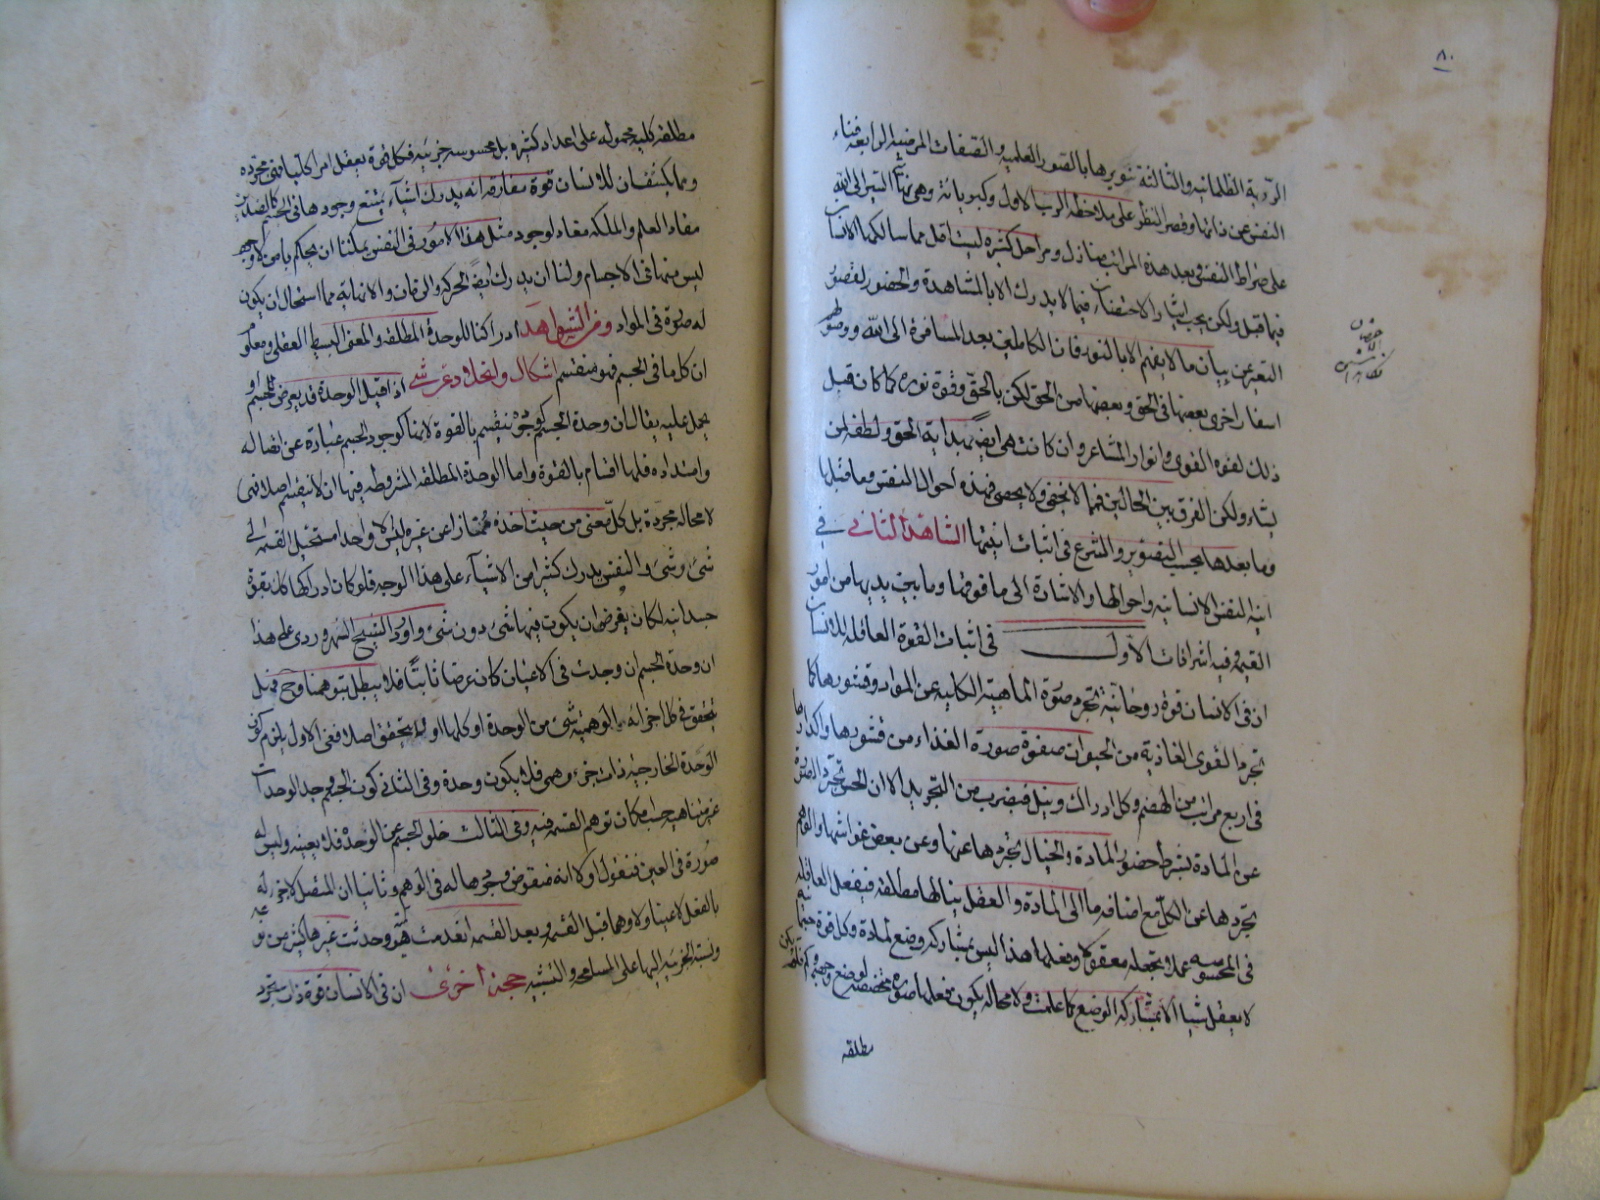 ٨٠
الردية الظلمانية والثالثة تنويرها بالصور العلمية والصفات المرضية الرابعة فناء
النفس عن ذاتها وقصر النظر على ملاحظة الرب الاول وكبريائه وهي نهاية السير الى الله
على صراط النفس وبعد هذه المراتب منازل ومراحل كثيرة ليست اقل مما سالكها الانسان
فيما قبل ولكن يجب ايثار الاختصار فيما لا يدرك الا بالمشاهدة والحضور لقصور
التعبير عن بيان ما لا يفهم الا بالنور فان الكاملين بعد المسافرة الى الله ووصولهم
اسفار اخرى بعضها في الحق وبعضها من الحق لكن بالحق وقوة نوره كما كان قبل
ذلك لقوة القوى وانوار المشاعر وان كانت هي ايضا بهداية الحق ولطفه لمن
يشاء ولكن الفرق بين الحالين مما لا يخفى ولا يحصى فهذه احوال النفس وما قبلها
وما بعدها بحسب التصوير والشرع في اثبات انيتها الشاهد الثاني في
انية النفس الانسانية واحوالها والاشارة الى ما فوقها وما بين يديها من امور
القيمة وفيه اشراقات الاول في اثبات القوة العاقلة للانسان
ان في الانسان قوة روحانية تجرد صورة الماهية الكلية عن المواد وقشورها كما
تجرد القوى الغاذية من الحيوان صفوة صورة الغذاء من قشورها واكدارها
في اربع مراتب من الهضم وكل ادراك ونيل فبضرب من التجريد الا ان الحس تجرد الصورة
عن المادة بشرط حضور المادة والخيال تجردها عنها وعن بعض غواشيها والوهم
تجردها عن الكل مع اضافة ما الى المادة والعقل ينالها مطلقة فيفعل العاقلة
في المحسوس عملا وتجعله معقولا وفعلها هذا ليس بمشاركة وضع لمادة وكل قوة جسمانية
لا يعقل شيئا الا بمشاركة الوضع كما علمت ولا محالة يكون فعلها صورة مختصة لوضع
مطلقة
مطلقة كلية محمولة على اعداد كثيرة بل محسوسة جزئية فكل قوة يعقل امرا كليا فهي مجردة
ومما يكشف ان للانسان قوة مفارقة انه يدرك اشياء يمتنع وجودها في الجسم كالضدين
معا والعلم والملكة معا ولوجود مثل هذا الامور في النفس يمكننا ان نحكم بامر لا وجود
ليس منها في الاجسام ولنا ان يدرك ايضا الحركة والزمان واللانهاية مما استحال ان يكون
له صورة في المواد ومن الشواهد ادراكنا للوحدة المطلقة والمعنى البسيط العقلي ومعلوم
ان كل ما في الجسم فهو منقسم اشكال وانحلال عرشي اذا قيل الوحدة قد يعرض للجسم او
يحمل عليه يقال ان وحدة الجسم كوجوده ينقسم بالقوة لانها كوجود الجسم عبارة عن اتصاله
وامتداده فلها اقسام بالقوة واما الوحدة المطلقة المشروطة فيها ان لا ينقسم اصلا فهي
لا محالة مجردة بل كل معنى من حيث اخذه ممتازا عن غيره ليس الا واحدا مستحيل القسمة الى
شئ وشئ والنفس يدرك كثيرا من الاشياء على هذا الوجه فلو كان ادراكها كل بقوة
جسدانية لكان يفرض ان يكون فيها شئ دون شئ واورد الشيخ السهروردي على هذا
ان وحدة الجسم ان وجدت في الاعيان كان عرضا ثابتا فلا يبطل بتوهمنا وح فهل
يتحقق في كل اجزائه الوهمية شئ من الوحدة او كلها او لا يتحقق اصلا ففي الاول يلزم كون
الوحدة الخارجية ذات جزء وهمي فلا يكون وحدة وفي الثاني كون الجسم مجد الوحدات
غير متناهية حسب امكان توهم القسمة فيه وفي الثالث خلو الجسم عن الوحدة فلا بعينه وليس له
صورة في العين فنقول اولا انه منقوض بوجودها له في الوهم وثانيا ان المتصل لا جزء له
بالفعل لا عينا ولا وهما قبل القسمة وبعد القسمة انعدمت هي وحدثت غيرها كثير من نوعه
ونسبة الجزئية اليها على المسامحة والتشبيه حجة اخرى ان في الانسان قوة ذات تجرد